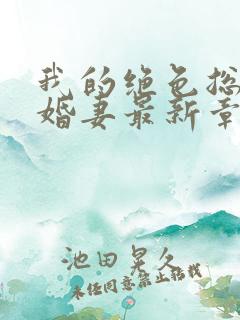 我的绝色总
婚妻最新章
池田晃久
未经同意禁止转载